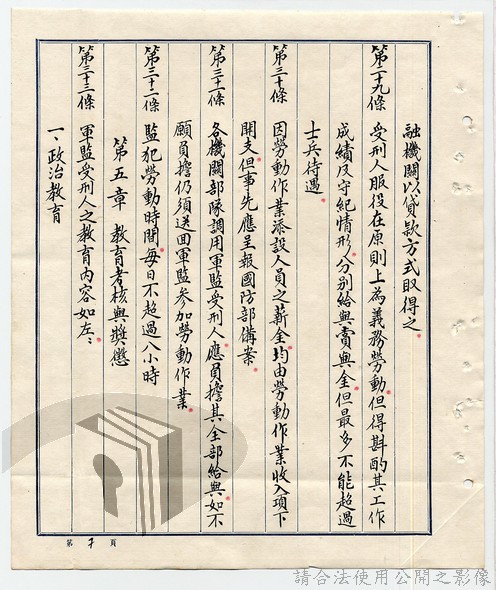 融機關以貸款方式取得之。
第二十九條　受刑人服役在原則上為義務勞動但得斟酌其工作
成績及守紀情形。分別給與賣與金。但最多不能超過
士兵待遇。
第三十條　因勞動作業添設人員之薪金。均由勞動作業收入項下
開支。但事先應呈報國防部備案。
第三十一條　各機關部隊調用軍監受刑人。應負擔其全部給與。如不
願負擔仍須送回軍監參加勞動作業。
第三十二條　監犯勞動時間。每日不超過八小時
第五章　教育考核與獎懲
第三十三條　軍監受刑人之教育內容如左：
一、政治教育
第 頁
請合法使用公開之影像